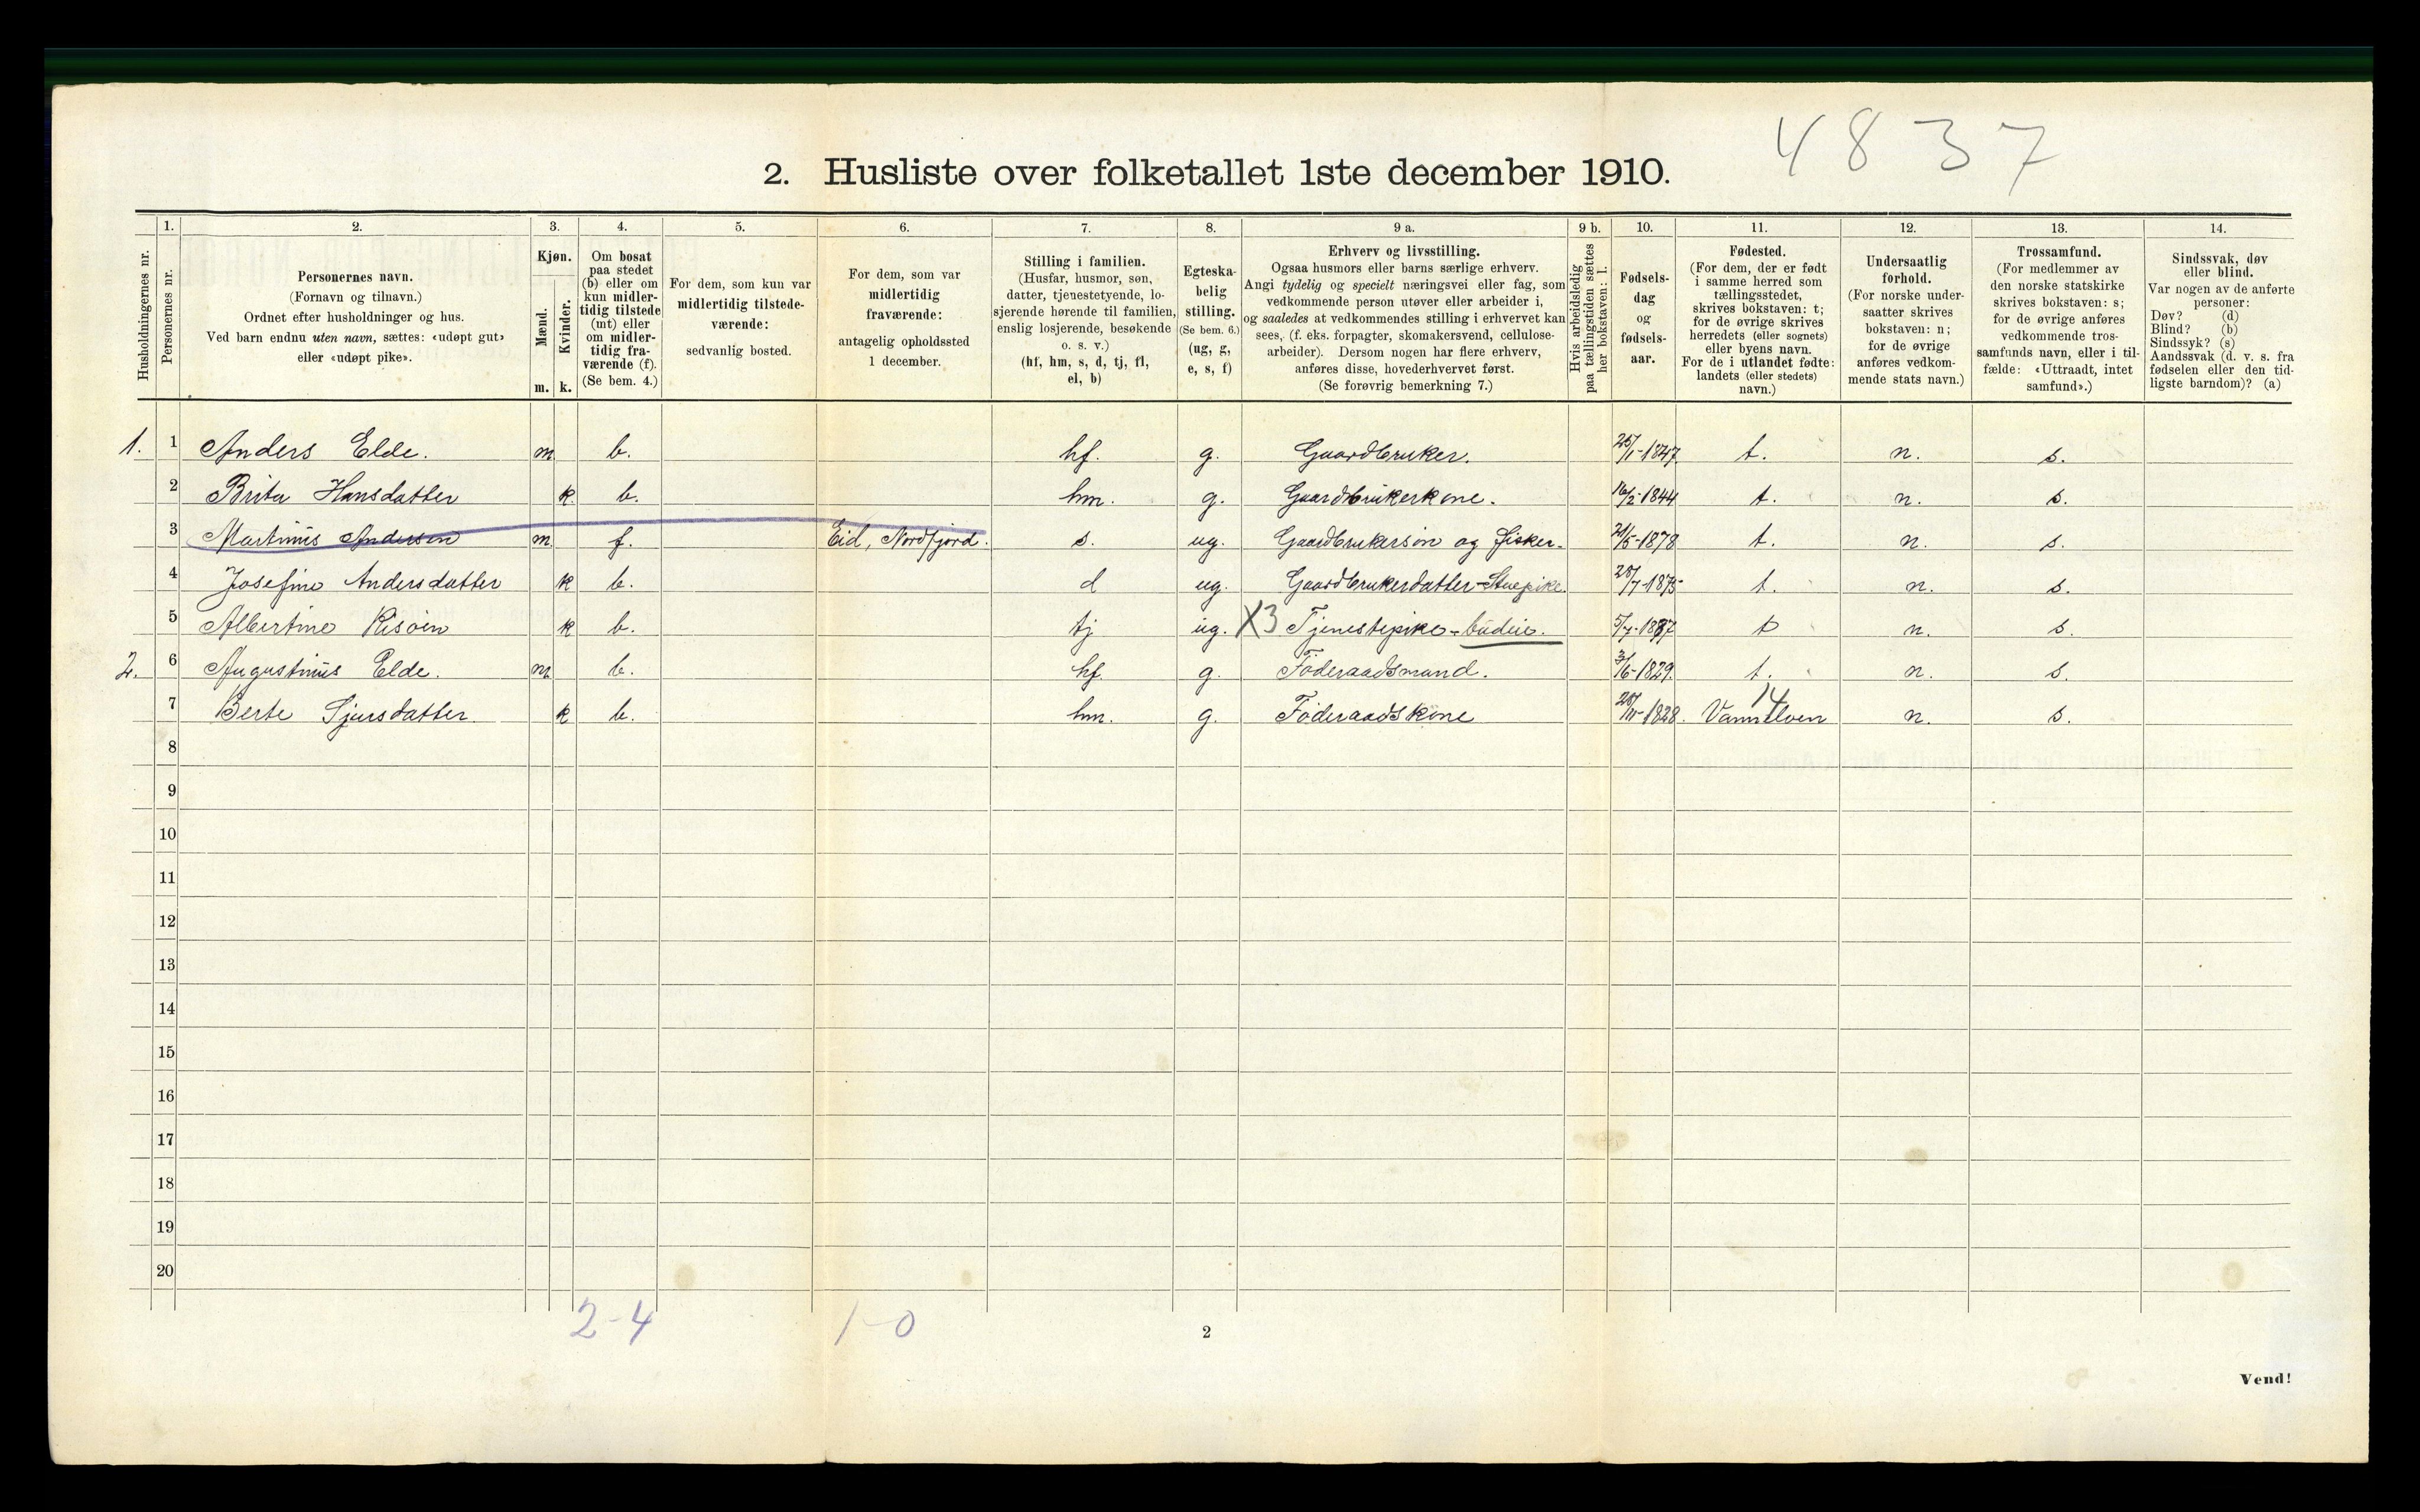 4837
2. Husliste over folketallet 1ste december 1910.
Husholdningernes nr.
1.
Personernes nr.
2.
Personernes navn.
(Fornavn og tilnavn.)
Ordnet efter husholdninger og hus.
Ved barn endnu uten navn, sættes: «udøpt gut»
eller «udøpt pike».
3.
Kjøn.
Mænd.
Kvinder.
m. k.
4.
Om bosat
paa stedet
(b) eller om
kun midler-
tidig tilstede
(mt) eller
om midler-
tidig fra-
værende (f).
(Se bem. 4.)
5.
For dem, som kun var
midlertidig tilstede-
værende:
sedvanlig bosted.
6.
For dem, som var
midlertidig
fraværende:
antagelig opholdssted
1 december.
7.
Stilling i familien.
(Husfar, husmor, søn,
datter, tjenestetyende, lo-
sjerende hørende til familien,
enslig losjerende, besøkende
o. s. v.)
(hf, hm, s, d, tj, fl,
el, b)
8.
Egteska-
belig
stilling.
(Se bem. 6.)
(ug, g,
e, s, f)
9 a.
Erhverv og livsstilling.
Ogsaa husmors eller barns særlige erhverv.
Angi tydelig og specielt næringsvei eller fag, som
vedkommende person utøver eller arbeider i,
og saaledes at vedkommendes stilling i erhvervet kan
sees, (f. eks. forpagter, skomakersvend, cellulose-
arbeider). Dersom nogen har flere erhverv,
anføres disse, hovederhvervet først.
(Se forøvrig bemerkning 7.)
9 b.
Hvis arbeidsledig
paa tællingstiden sættes
her bokstaven: l.
10.
Fødsels-
dag
og
fødsels-
aar.
11.
Fødested.
(For dem, der er født
i samme herred som
tællingsstedet,
skrives bokstaven: t;
for de øvrige skrives
herredets (eller sognets)
eller byens navn.
For de i utlandet fødte:
landets (eller stedets)
navn.)
12.
Undersaatlig
forhold.
(For norske under-
saatter skrives
bokstaven: n;
for de øvrige
anføres vedkom-
mende stats navn.)
13.
Trossamfund.
(For medlemmer av
den norske statskirke
skrives bokstaven: s;
for de øvrige anføres
vedkommende tros-
samfunds navn, eller i til-
fælde: «Uttraadt, intet
samfund».)
14.
Sindssvak, døv
eller blind.
Var nogen av de anførte
personer:
Døv? (d)
Blind? (b)
Sindssyk? (s)
Aandssvak (d. v. s. fra
fødselen eller den tid-
ligste barndom)? (a)
1. 1 Anders Elde. m b. hf. g. Gaardbruker. 25/1-1847. t. n. s.
2 Brita Hansdatter k b. hm. g. Gaardbrukerkone. 16/2-1844 t. n. s.
3 Martinus Andersen m f. Eid, Nordfjord. s. ug. Gaardbrukersøn og fisker. 21/5-1878 t. n. s.
4 Josefine Andersdatter k b. d ug. Gaardbrukerdatter-Stuepike. 28/7-1875 t. n. s.
5 Albertine Risøen k b. tj ug. X3 Tjenestepike-budeie. 5/7-1887 t n. s.
2. 6 Augustinus Elde. m b. hf. g. Føderaadsmand. 3/6-1829. t. n. s.
7 Berte Sjursdatter. k b. hm. g. Føderaadskone 1828. 14 Vannelven n. s.
8
9
10
11
12
13
14
15
16
17
18
19
20
2-4 1-0
2
Vend!